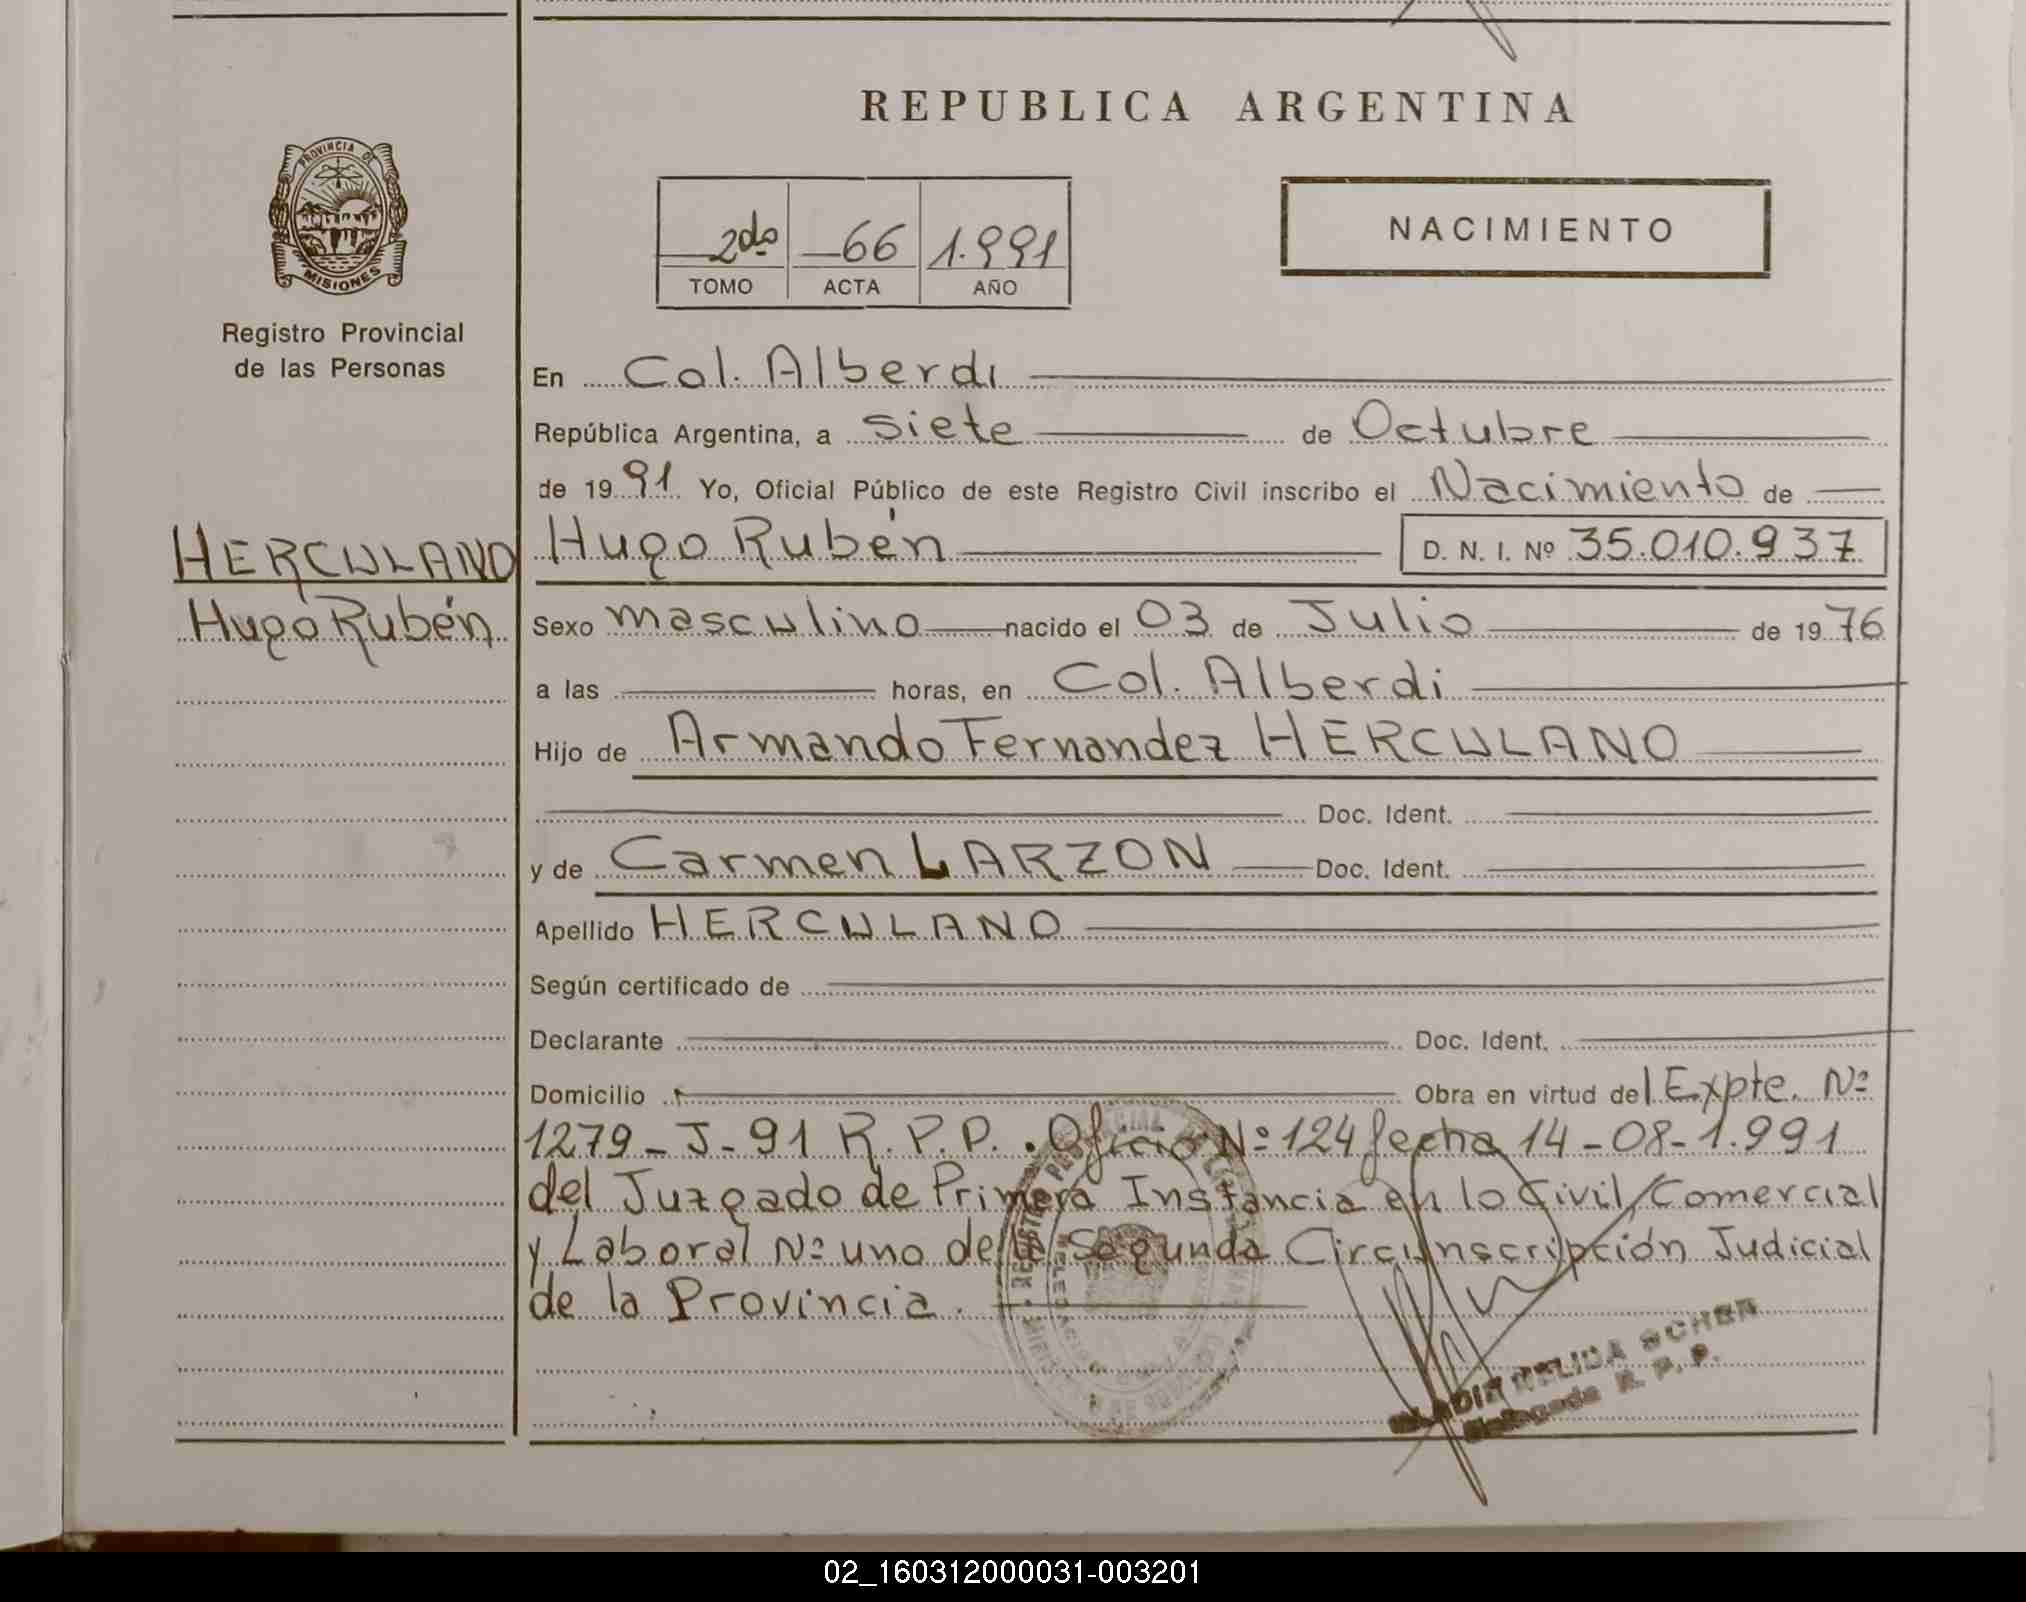 REPUBLICA ARGENTINA
PROVINCIA DE
MISIONES
Registro Provincial
de las Personas
2do 66 1.991
TOMO ACTA AÑO
NACIMIENTO
En Col. Alberdi
República Argentina, a siete de Octubre
de 1991 Yo, Oficial Público de este Registro Civil inscribo el Nacimiento de
HERCULANO
Hugo Rubén
Hugo Rubén D. N. I. Nº 35.010.937
Sexo masculino nacido el 03 de Julio de 1976
a las horas, en Col. Alberdi
Hijo de Armando Fernandez HERCULANO
Doc. Ident.
y de Carmen LARZON Doc. Ident.
Apellido HERCULANO
Según certificado de
Declarante Doc. Ident.
Domicilio Obra en virtud del Expte. Nº
1279-J-91 R.P.P. . Oficio Nº 124 fecha 14-08-1.991
del Juzgado de Primera Instancia en lo Civil, Comercial
y Laboral Nº uno de la Segunda Circunscripción Judicial
de la Provincia.
NELIDA SCHER
Delegada R. P. P.
02_160312000031-003201